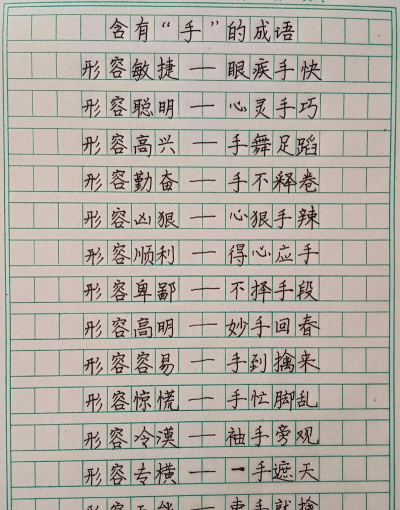 含有“手”的成语
形容敏捷 — 眼疾手快
形容聪明 — 心灵手巧
形容高兴 — 手舞足蹈
形容勤奋 — 手不释卷
形容凶狠 — 心狠手辣
形容顺利 — 得心应手
形容卑鄙 — 不择手段
形容高明 — 妙手回春
形容容易 — 手到擒来
形容惊慌 — 手忙脚乱
形容冷漠 — 袖手旁观
形容专横 — 一手遮天